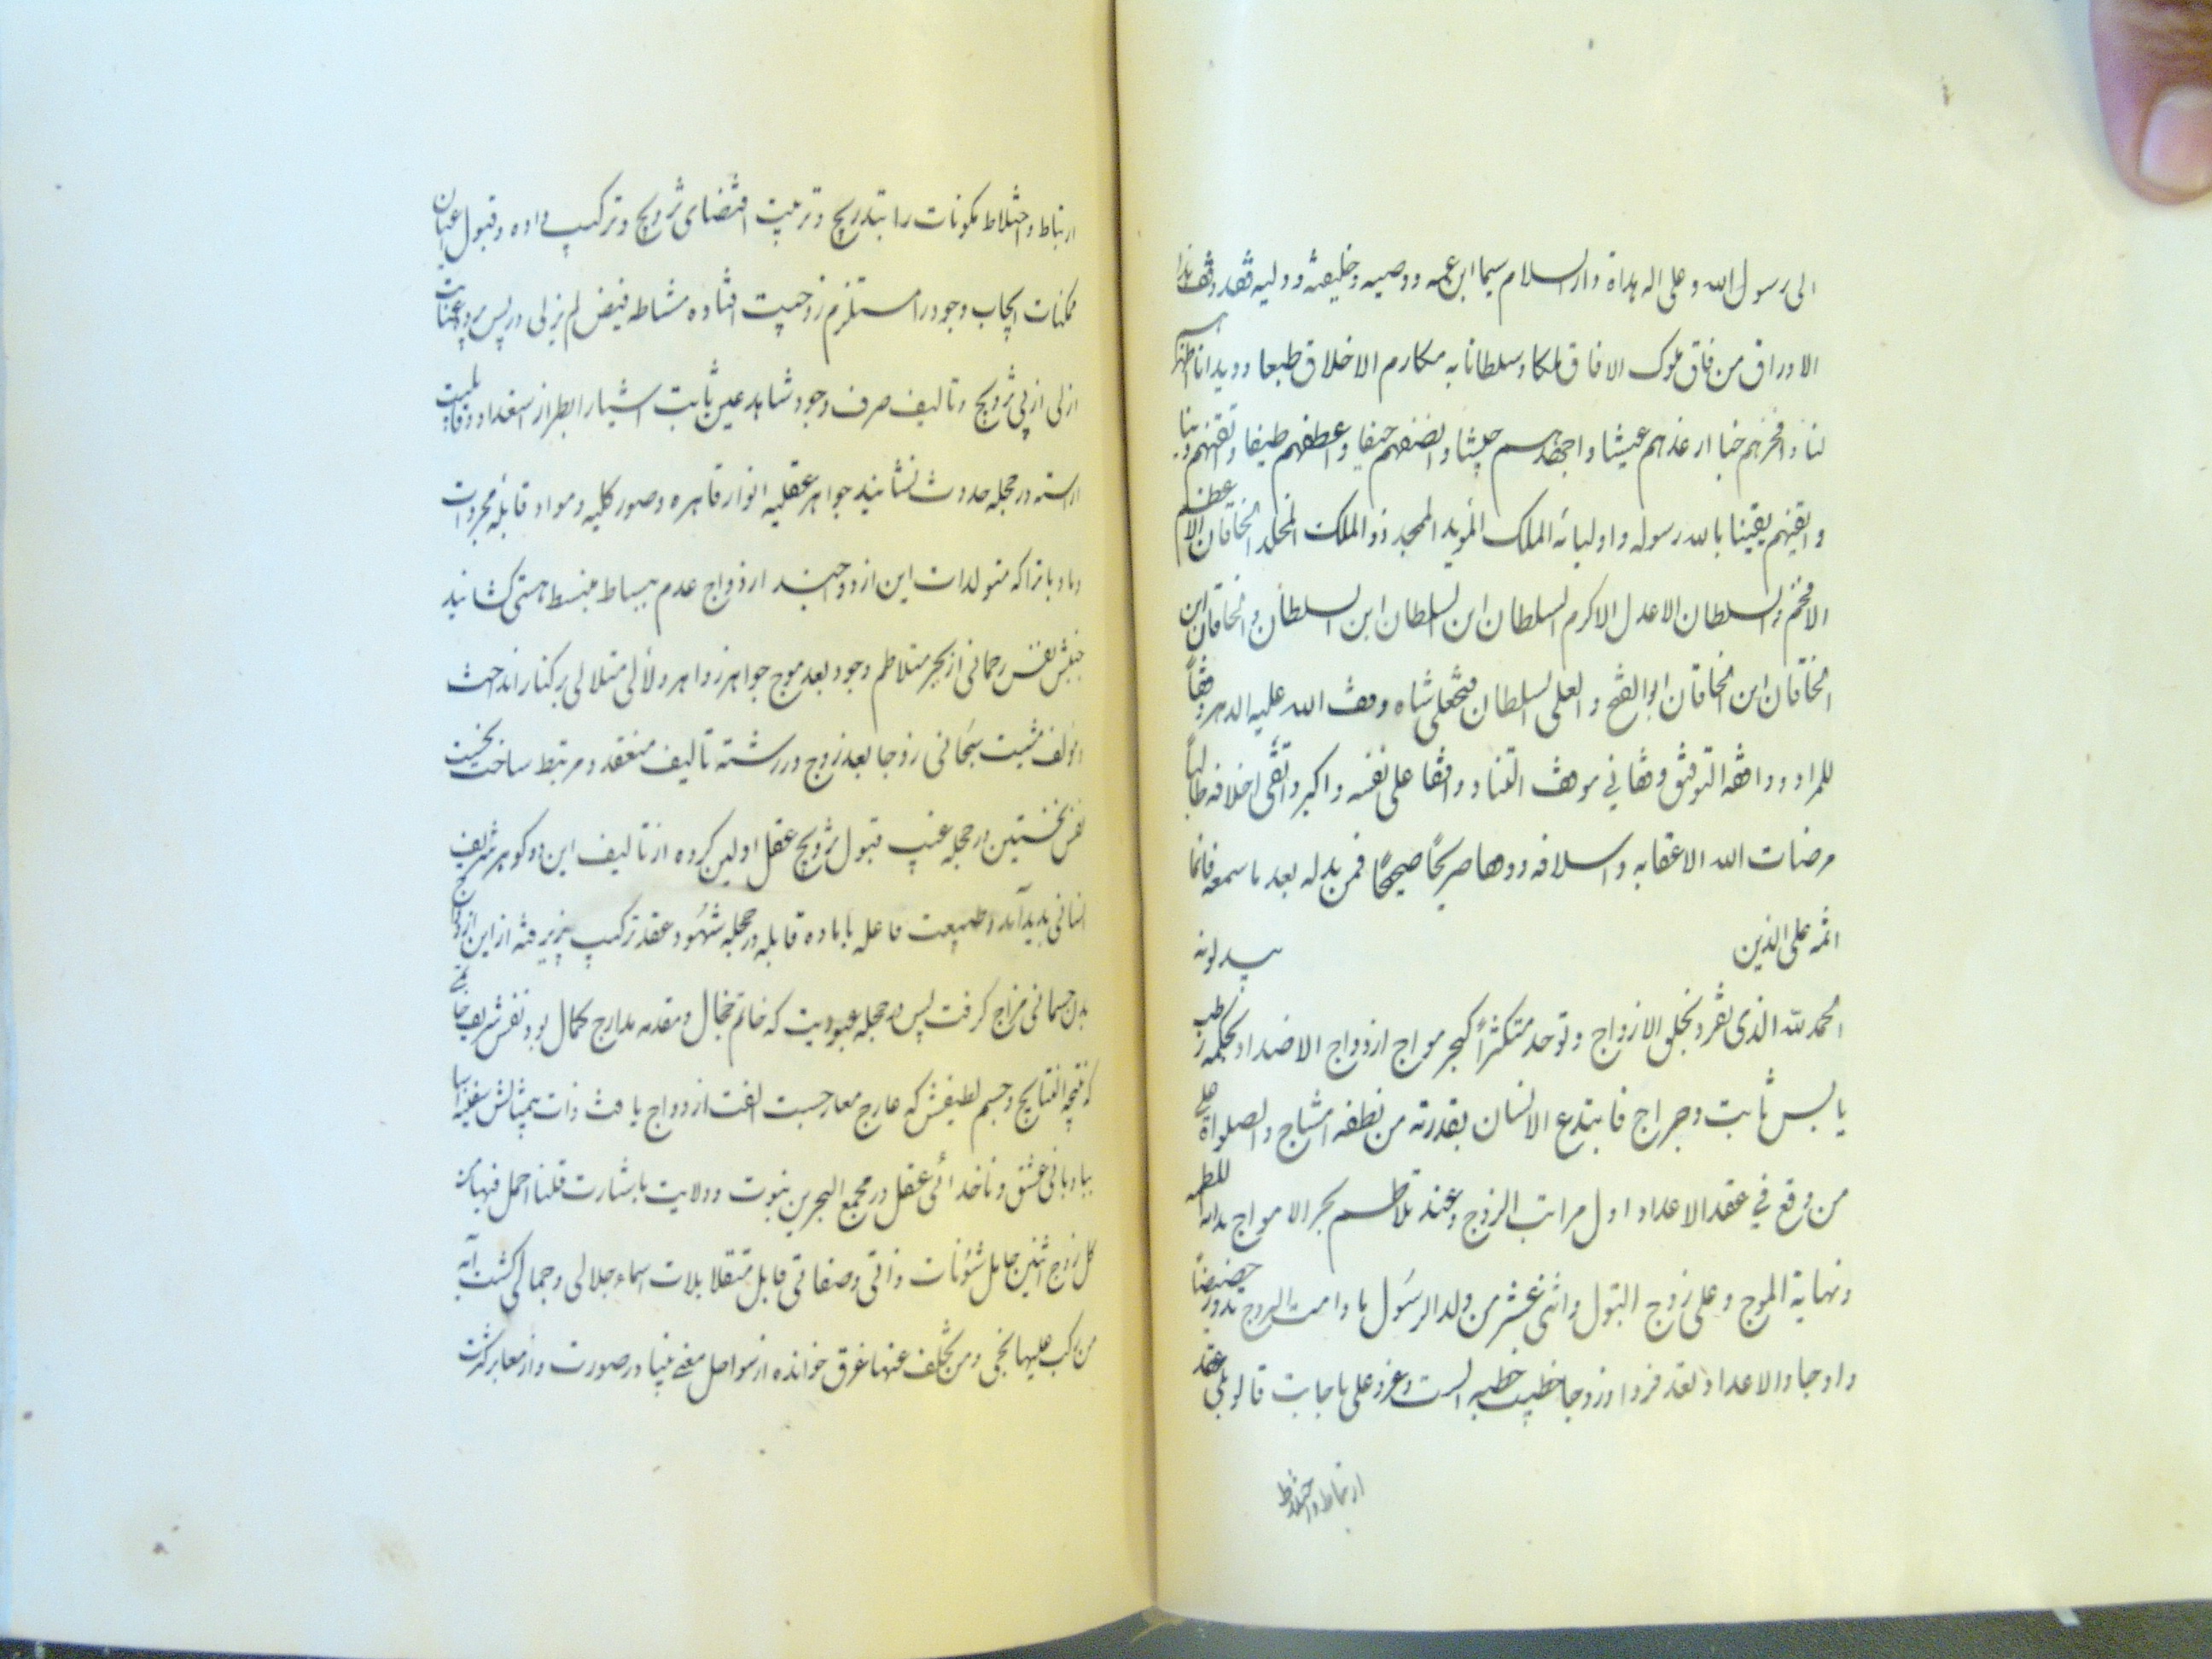 الی رسول الله و علی اله هداة دار السلام سیما ابن عمه و وصیه و خلیفته و ولیه فقد وقف هذا
الاوراق من فاق ملوک الافاق ملکا و سلطانا به مکارم الاخلاق طبعا و دیدانا اظهرهم
لنا و افخرهم ارغدهم عیشا و اجهدهم جیشا و انصفهم حیفا و اعطفهم طیفا و اتقنهم دینا
و ایقنهم یقینا بالله رسوله و اولیائه الملک المؤید الممجد ذو الملک المخلد الخاقان الاعظم
الافخم و السلطان الاعدل الاکرم السلطان ابن السلطان ابن السلطان و الخاقان ابن
الخاقان ابن الخاقان ابو الفتح و العلی السلطان فتحعلی شاه وقف الله علیه الدهر وقفاً
للمراد و وافقه التوفیق وقفا فی موقف التناد واقفا علی نفسه و اکبر و اتقی اخلافه طالباً
مرضات الله الاعقابه و اسلافه وقفا صریحاً صحیحاً فمن بدله بعد ما سمعه فانما
اثمه علی الذین یبدلونه
الحمد لله الذی تفرد بخلق الازواج و توحد متکثراً کبحر مواج ازدواج الاضداد بحکمه رطب
یابس ثابت و جراج فابتدع الانسان بقدرته من نطفه امشاج و الصلواة علی
من وقع فی عقد الاعداد اول مراتب الزوج و عند تلاطم بحر الامواج بدایه اللطمه
و نهایة الموج و علی زوج البتول و اثنی عشر من ولد الرسول ما دامت البروج تدور حضیضاً
و اوجا و الاعداد تعد فردا و زوجا خطیب خطبه الست و غرد علی باجابت قالو بلی عقد
ارتباط و اختلاط
ارتباط و اختلاط مکونات را بتدریج و ترتیب اقتضای تزویج و ترکیب داده و قبول اعیان
ممکنات ایجاب وجود را مستلزم زوجیت افتاده مشاطه فیض لم یزلی در پس پرده عنایت
ازلی از پی تزویج و تالیف صرف وجود شاهد عین ثابت اشیا را بطراز استعداد و قابلیت
اراسته در حجله حدوث نشانید جواهر عقلیه انوار قاهره و صور کلیه و مواد قابله مجردات
و مادیاترا که متولدات این ازدوجند ازدواج عدم ببساط منبسط هستی کشانید
جنبش نفس رحمانی از بحر متلاطم وجود بعد موج جواهر زواهر و لالی متلالی بر کنار انداخت
مؤلف مشیت سبحانی زوجا بعد زوج در رشته تالیف منعقد و مرتبط ساخت نخست
نفس نخستین در حجله غیب قبول تزویج عقل اولین کرده از تالیف این دو گوهر شریف
انسانی پدید آمد و طبیعت فاعله با ماده قابله در حجله شهود عقد ترکیب پذیرفته از این ازدواج
بدن جسمانی مزاج گرفت پس در حجله عبودیت که خاتم مجال و مقدمه مدارج کمال بود نفس شریف خاتمی
که نتیجه النتایج و جسم لطیفش که عارج معارجست الفت ازدواج یافت ذات بیمثالش سفینه آسا
ببادبانی عشق و ناخدائی عقل در مجمع البحرین نبوت و ولایت باشارت قلنا احمل فیها من
کل زوج اثنین حامل شئونات ذاتی و صفاتی قابل متقابلات اسماء جلالی و جمالی گشت آیه
من رکب علیها نجی و من تخلف عنها غرق خوانده از سواحل معنی پا در صورت و از معابر کثرت